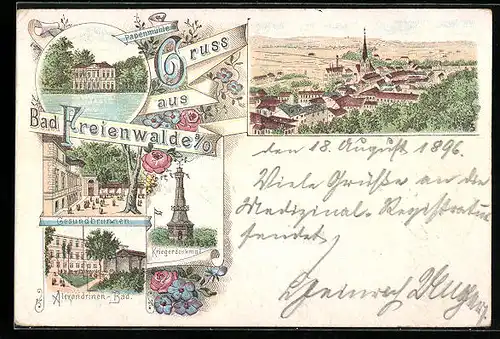 Papenmühle
Gruss
aus
Bad Freienwalde a/O
Gesundbrunnen
Kriegerdenkmal
Alexandrinen-Bad.
den 18. August 1896.
Viele Grüße an die
Medizinal-Registratur
sendet
Heinrich